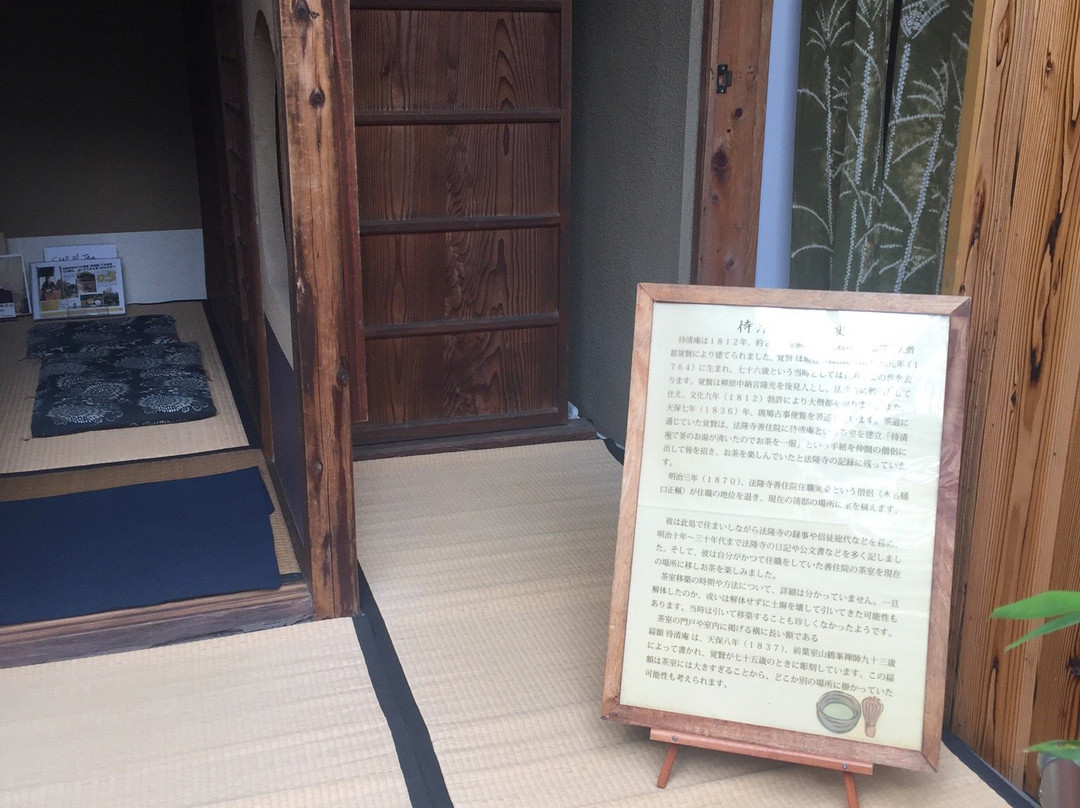 CUP of Tea
待
待清庵は1812年、
都覚賢により建てられました。覚賢は
764)に生まれ、七十六歳という当時としては
ります。覚賢は柳原中納言隆光を後見人とし、法
仕え、文化九年(1812)勅許により大僧都
天保七年(1836)年、斑鳩古事便覧を
通じていた覚賢は、法隆寺善住院に待清庵という茶室を建立「待清
庵で釜のお湯が沸いたのでお茶を一服」という手紙を仲間の僧侶に
出して皆を招き、お茶を楽しんでいたと法隆寺の記録に残っていま
す。
明治三年(1870)、法隆寺善住院住職実
口正輔)が住職の地位を退き、現在の
彼は此処で住まいしながら法隆寺の録事や信徒総代などを務め、
明治十年~三十年代まで法隆寺の日記や公文書などを多く記しまし
た。そして、彼は自分がかつて住職をしていた善住院の茶室を現在
の場所に移しお茶を楽しみました。
茶室移築の時期や方法について、詳細は分かっていません。一旦
解体したのか、或いは解体せずに土塀を壊して引いてきた可能性も
あります。当時は引いて移築することも珍しくなかったようです。
茶室の門戸や室内に掲げる横に長い額である
扁額 待清庵 は、天保八年(1837)、前葉室山鶴峯禅師九十三歳
によって書かれ、覚賢が七十五歳のときに彫刻しています。この扁
額は茶室には大きすぎることから、どこか別の場所に掛かっていた
可能性も考えられます。